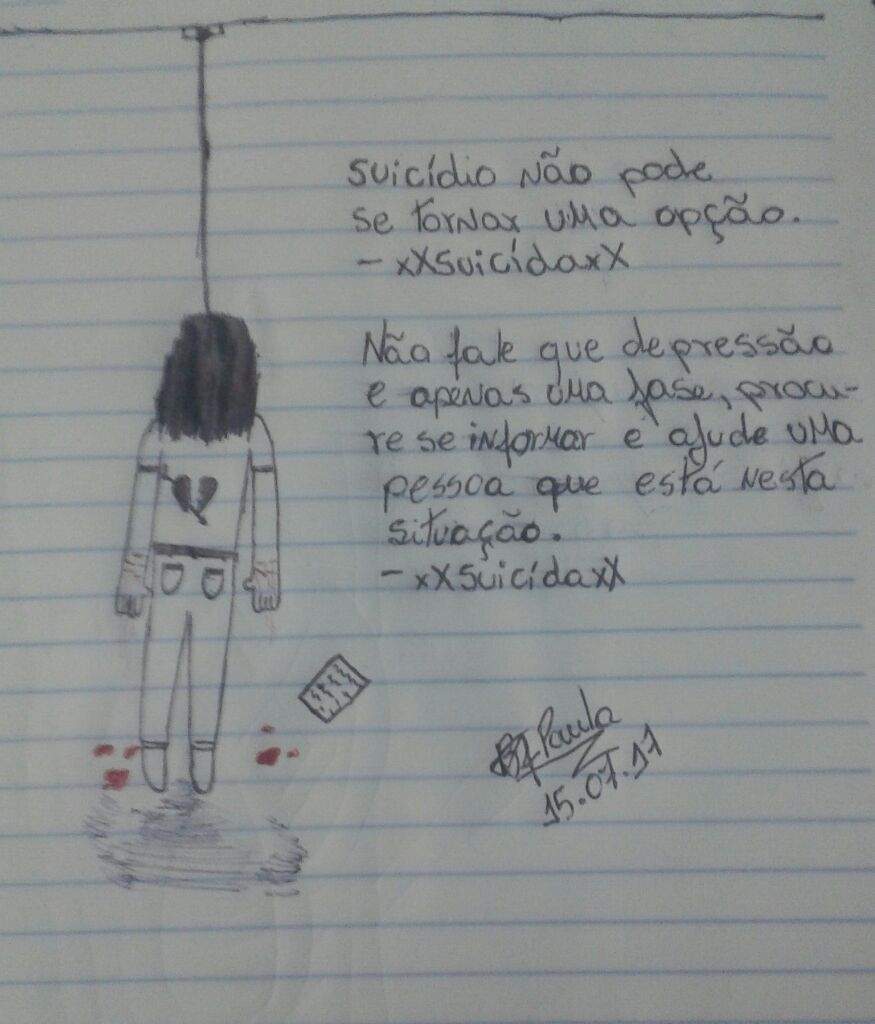 suicídio não pode
se tornar uma opção.
- xXsuicídaxX
Não fale que depressão
e apenas uma fase, procu-
re se informar e ajude uma
pessoa que está nesta
situação.
- xXsuicídaxX
Paula
15.07.17